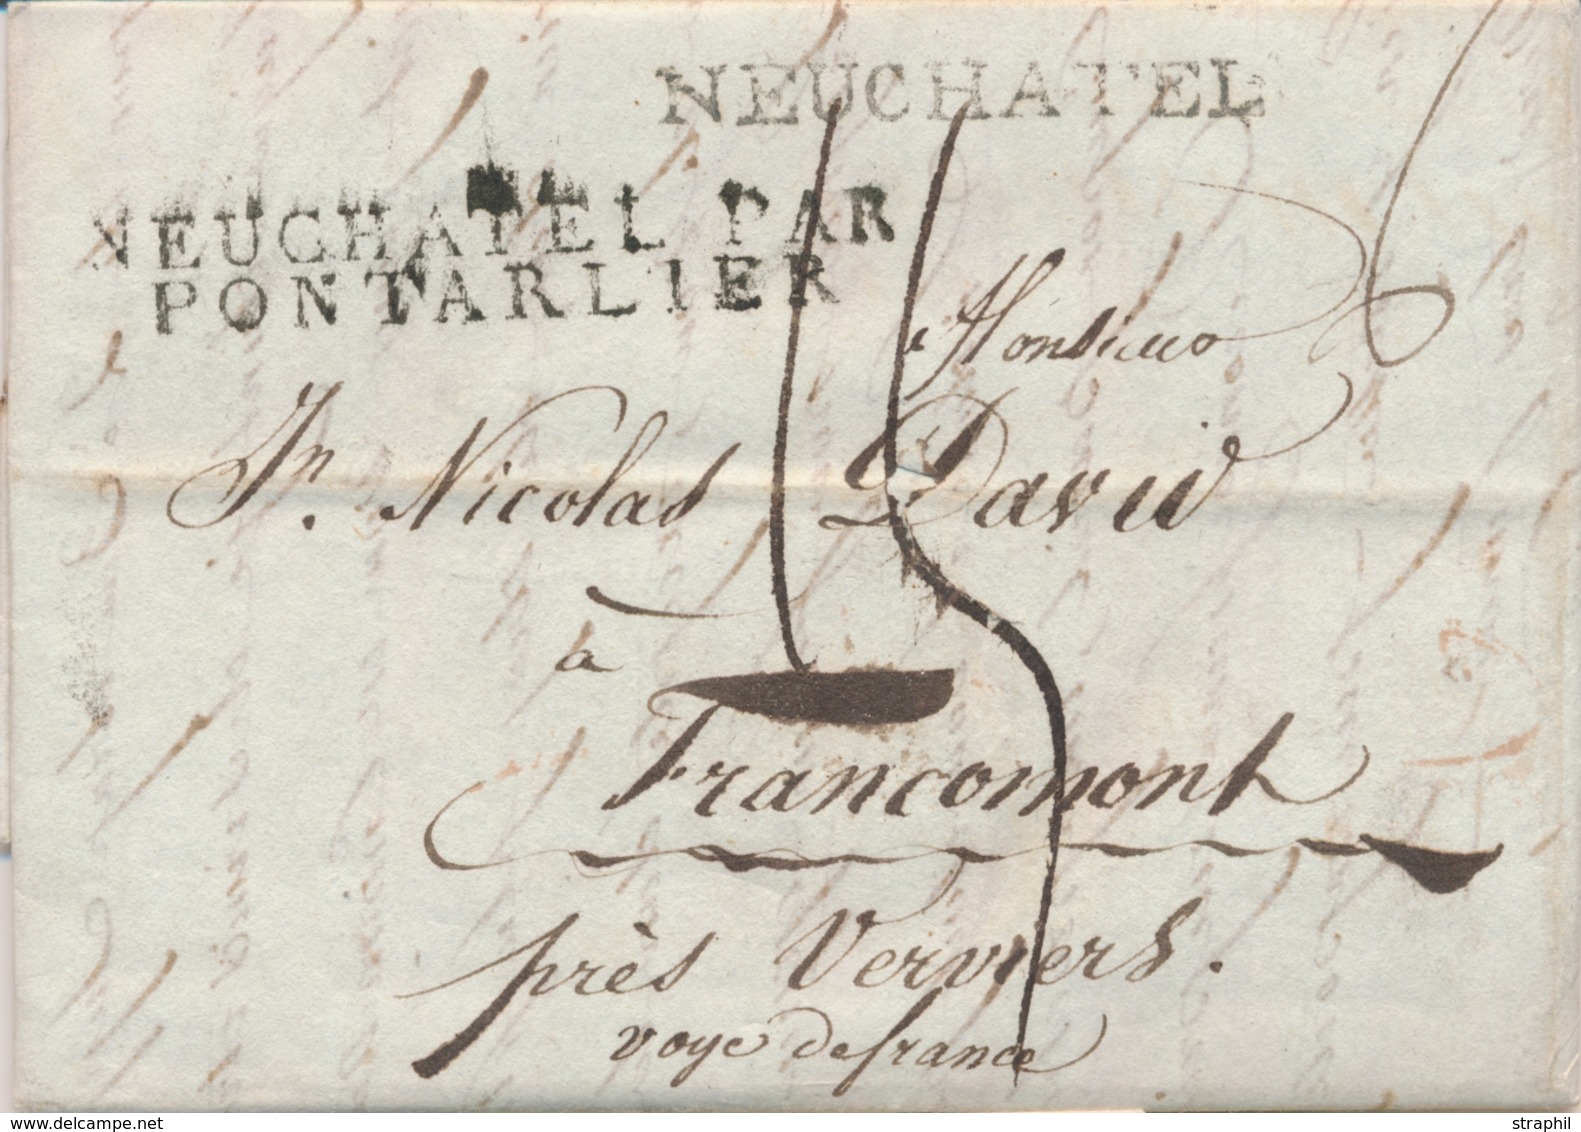 NEUCHATEL
NEUCHATEL PAR
PONTARLIER
a Monsieur
Jn. Nicolas David
à
Francomont
près Verviers.
voye de france
www.delcampe.net
straphil